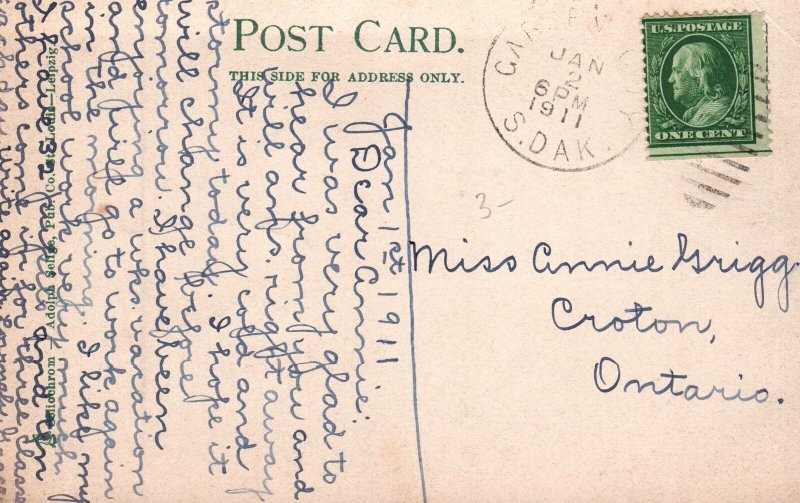 POST CARD.
THIS SIDE FOR ADDRESS ONLY.
JAN
2
6 PM
1911
S. DAK.
U.S. POSTAGE
ONE CENT
3-
Miss Annie Grigg.
Croton,
Ontario.
Jan 1st 1911
Dear Annie:
I was very glad to
hear from you and
will ans. right away
It is very cold and
stormy today. I hope it
will change before
tomorrow. I have been
enjoying a wks. vacation
and will go to work again
in the morning. I like my
school work very much
I have 32 pupils and
Adolph Selige, Pub. Co. St. Louis—Leipzig